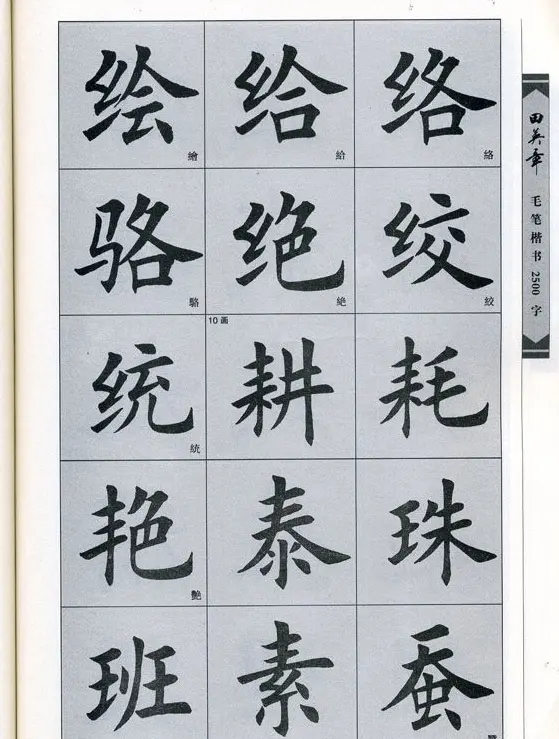 绘 给 络
繪 給 絡
骆 绝 绞
駱 絶 絞
10画
统 耕 耗
統
艳 泰 珠
艷
班 素 蚕
田英章
毛笔楷书2500字